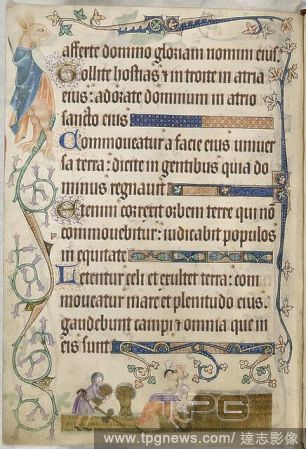 afferte domino gloriam nomini eius.
Tollite hostias & in troite in atria
eius: adorate dominum in atrio
sancto eius
Commoueatur a facie eius uniuer
sa terra: dicite in gentibus quia do
minus regnauit
Etenim correxit orbem terre qui nō
commouebitur: iudicabit populos
in equitate
Letentur celi et exultet terra: com
moueatur mare et plenitudo eius.
gaudebunt campi & omnia que in
eis sunt
TPG
www.tpgnews.com/ 達志影像